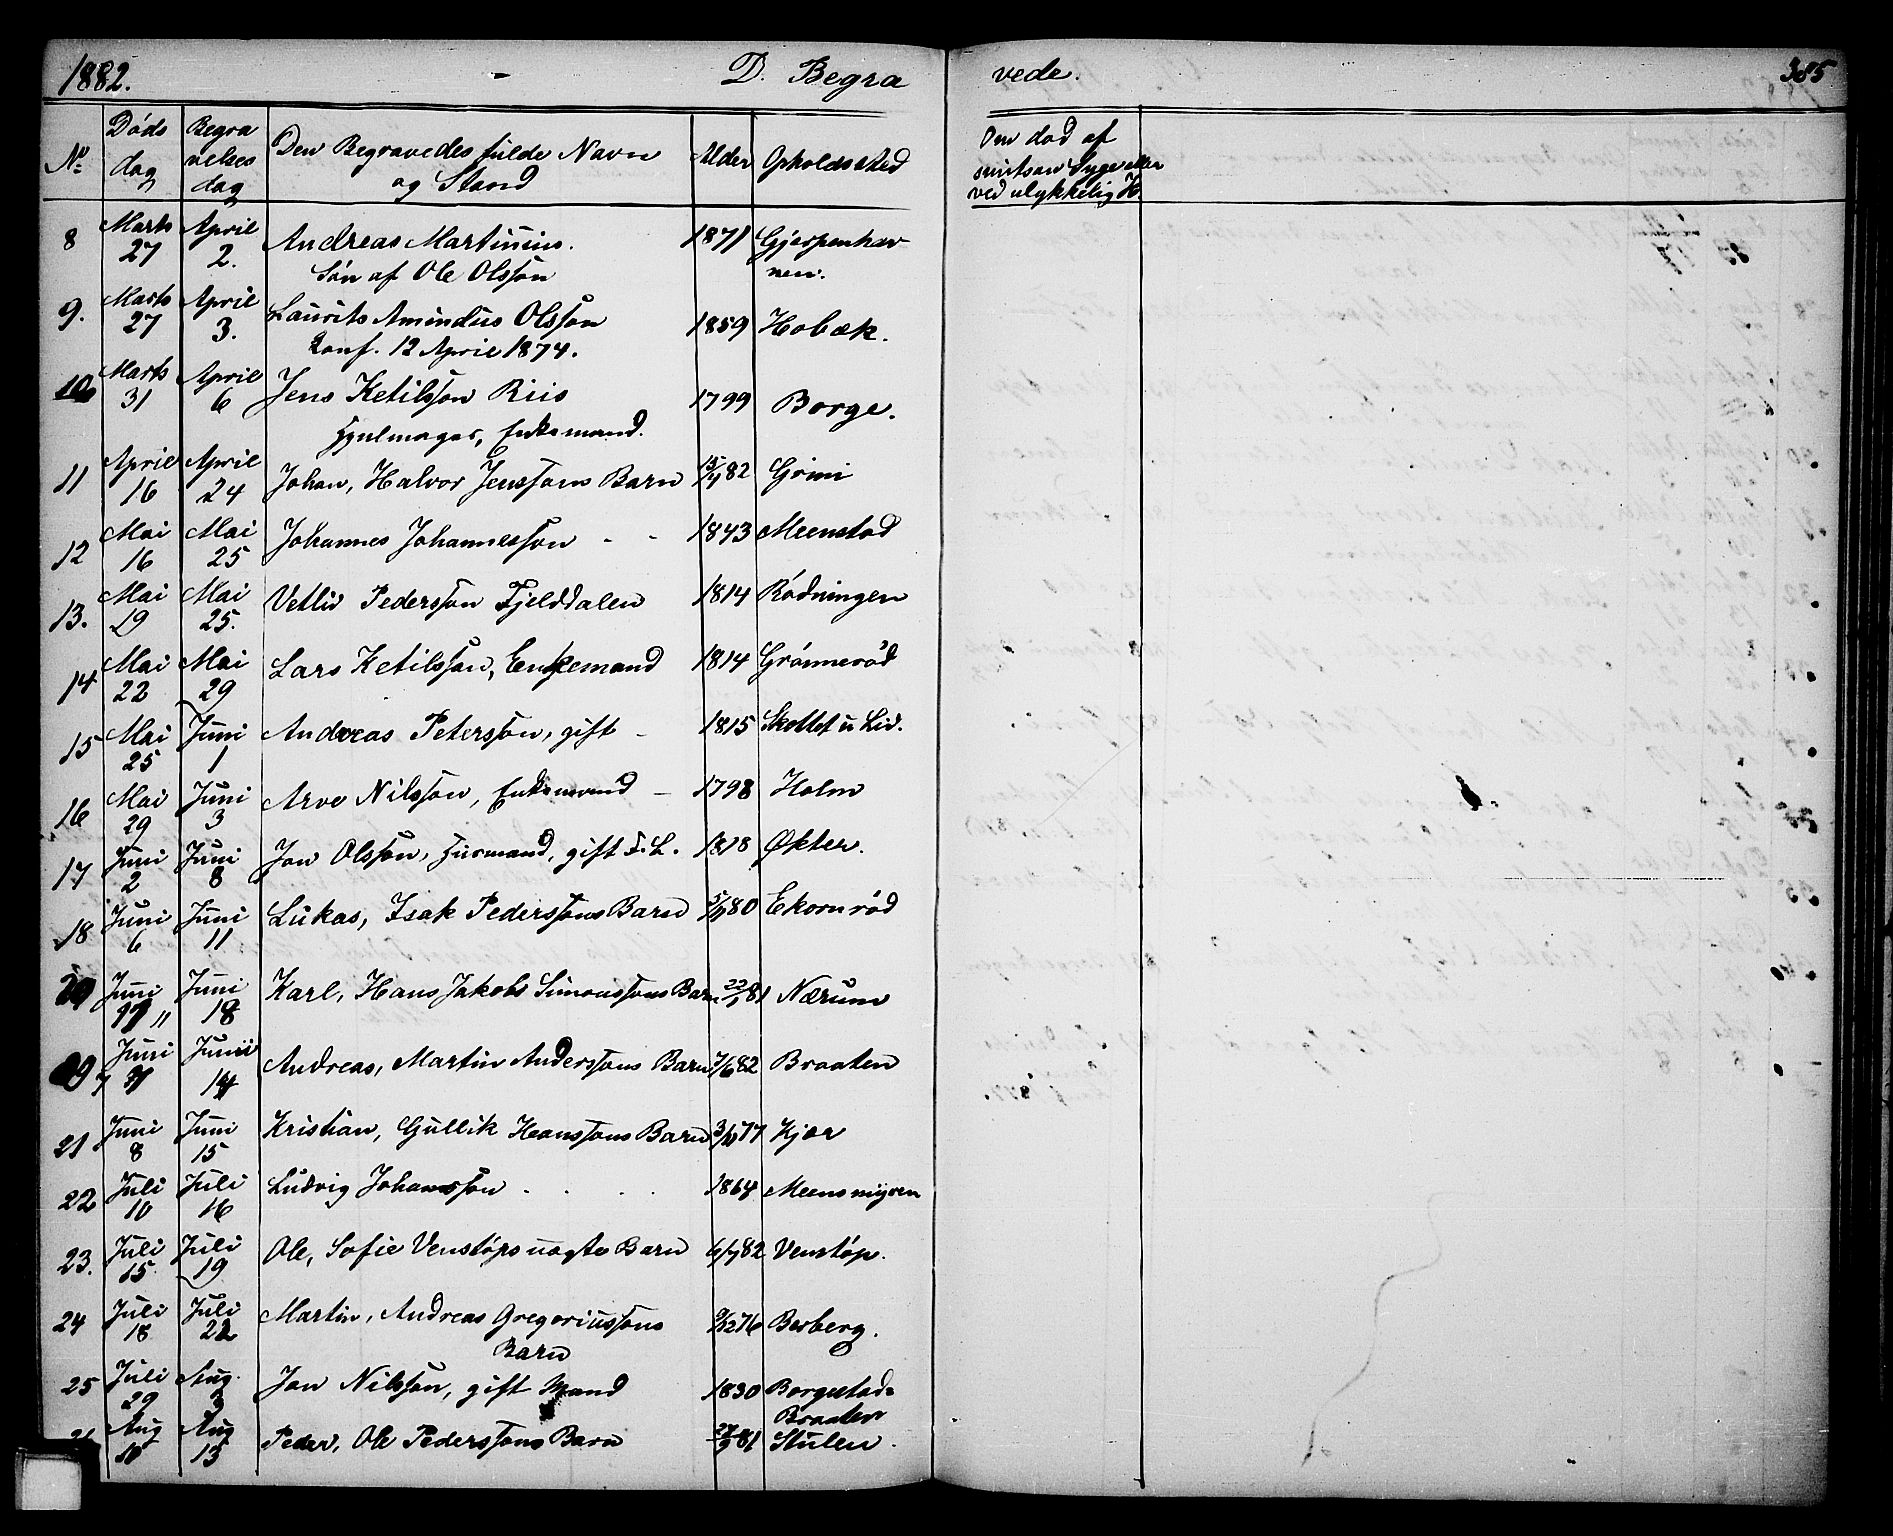 1882. D. Begra vede. 385
No Döds dag Begra velses dag Den Begravedes fulde Navn og Stand Alder Opholdssted Den död af smitsom Syge eller ved ulykkelig H.
8 Marts 27 April 2. Andreas Martinius. 1871 Gjerpenhav
Sön af Ole Olsson nen.
9. Marts 27 April 3. Laurits Amindus Olsson 1859 Hobæk.
Konf. 12 April 1874.
10 Marts 31 April 6 Jens Ketilsson Riis 1799 Borge.
Hjulmager, Enkemand.
11 April 16 April 24 Johan, Halvor Jenssons Barn 15/4 82 Grini
12 Mai 16 Mai 25 Johannes Johannesson - - 1843 Meenstad
13. Mai 19 Mai 25. Vetliv Pedersson Fjelddalen 1814 Rödningen
14 Mai 22 Mai 29 Lars Ketilsson, Enkemand 1814 Grönneröd
15 Mai 25 Juni 1 Andreas Petersson, gift - 1815 Skottet u Lid.
16 Mai 29 Juni 3 Arve Nilsson, Enkemand - 1798 Holm
17 Juni 2 Juni 8 Jon Olsson, Husmand, gift F. L. 1818 Økter.
18 Juni 6 Juni 11 Lukas, Isak Pederssons Barn 80 Ekornröd
20 Juni 11 Juni 18 Karl, Hans Jakob Simonssons Barn 22/1 81 Nærum
19 Juni 7 Juni 14 Andreas, Martin Anderssons Barn 7/6 82 Braaten
21 Juni 8 Juni 15 Kristian, Gullik Hanssons Barn 77 Kjær
22 Juli 10 Juli 16 Ludvig Johansson . . . . 1864 Meensmyren
23. Juli 15 Juli 19 Ole, Sofie Venstöps uægte Barn 82 Venstöp.
24 Juli 18 Juli 22 Martin, Andreas Gregoriussons 9/12 76 Berberg.
Barn
25 Juli 29 Aug. 3 Jon Nilsson, gift Mand 1830 Borgestad-
Braaten
Aug 10 Aug 13 Peder, Ole Pederssons Barn 27/9 81 Stulen.